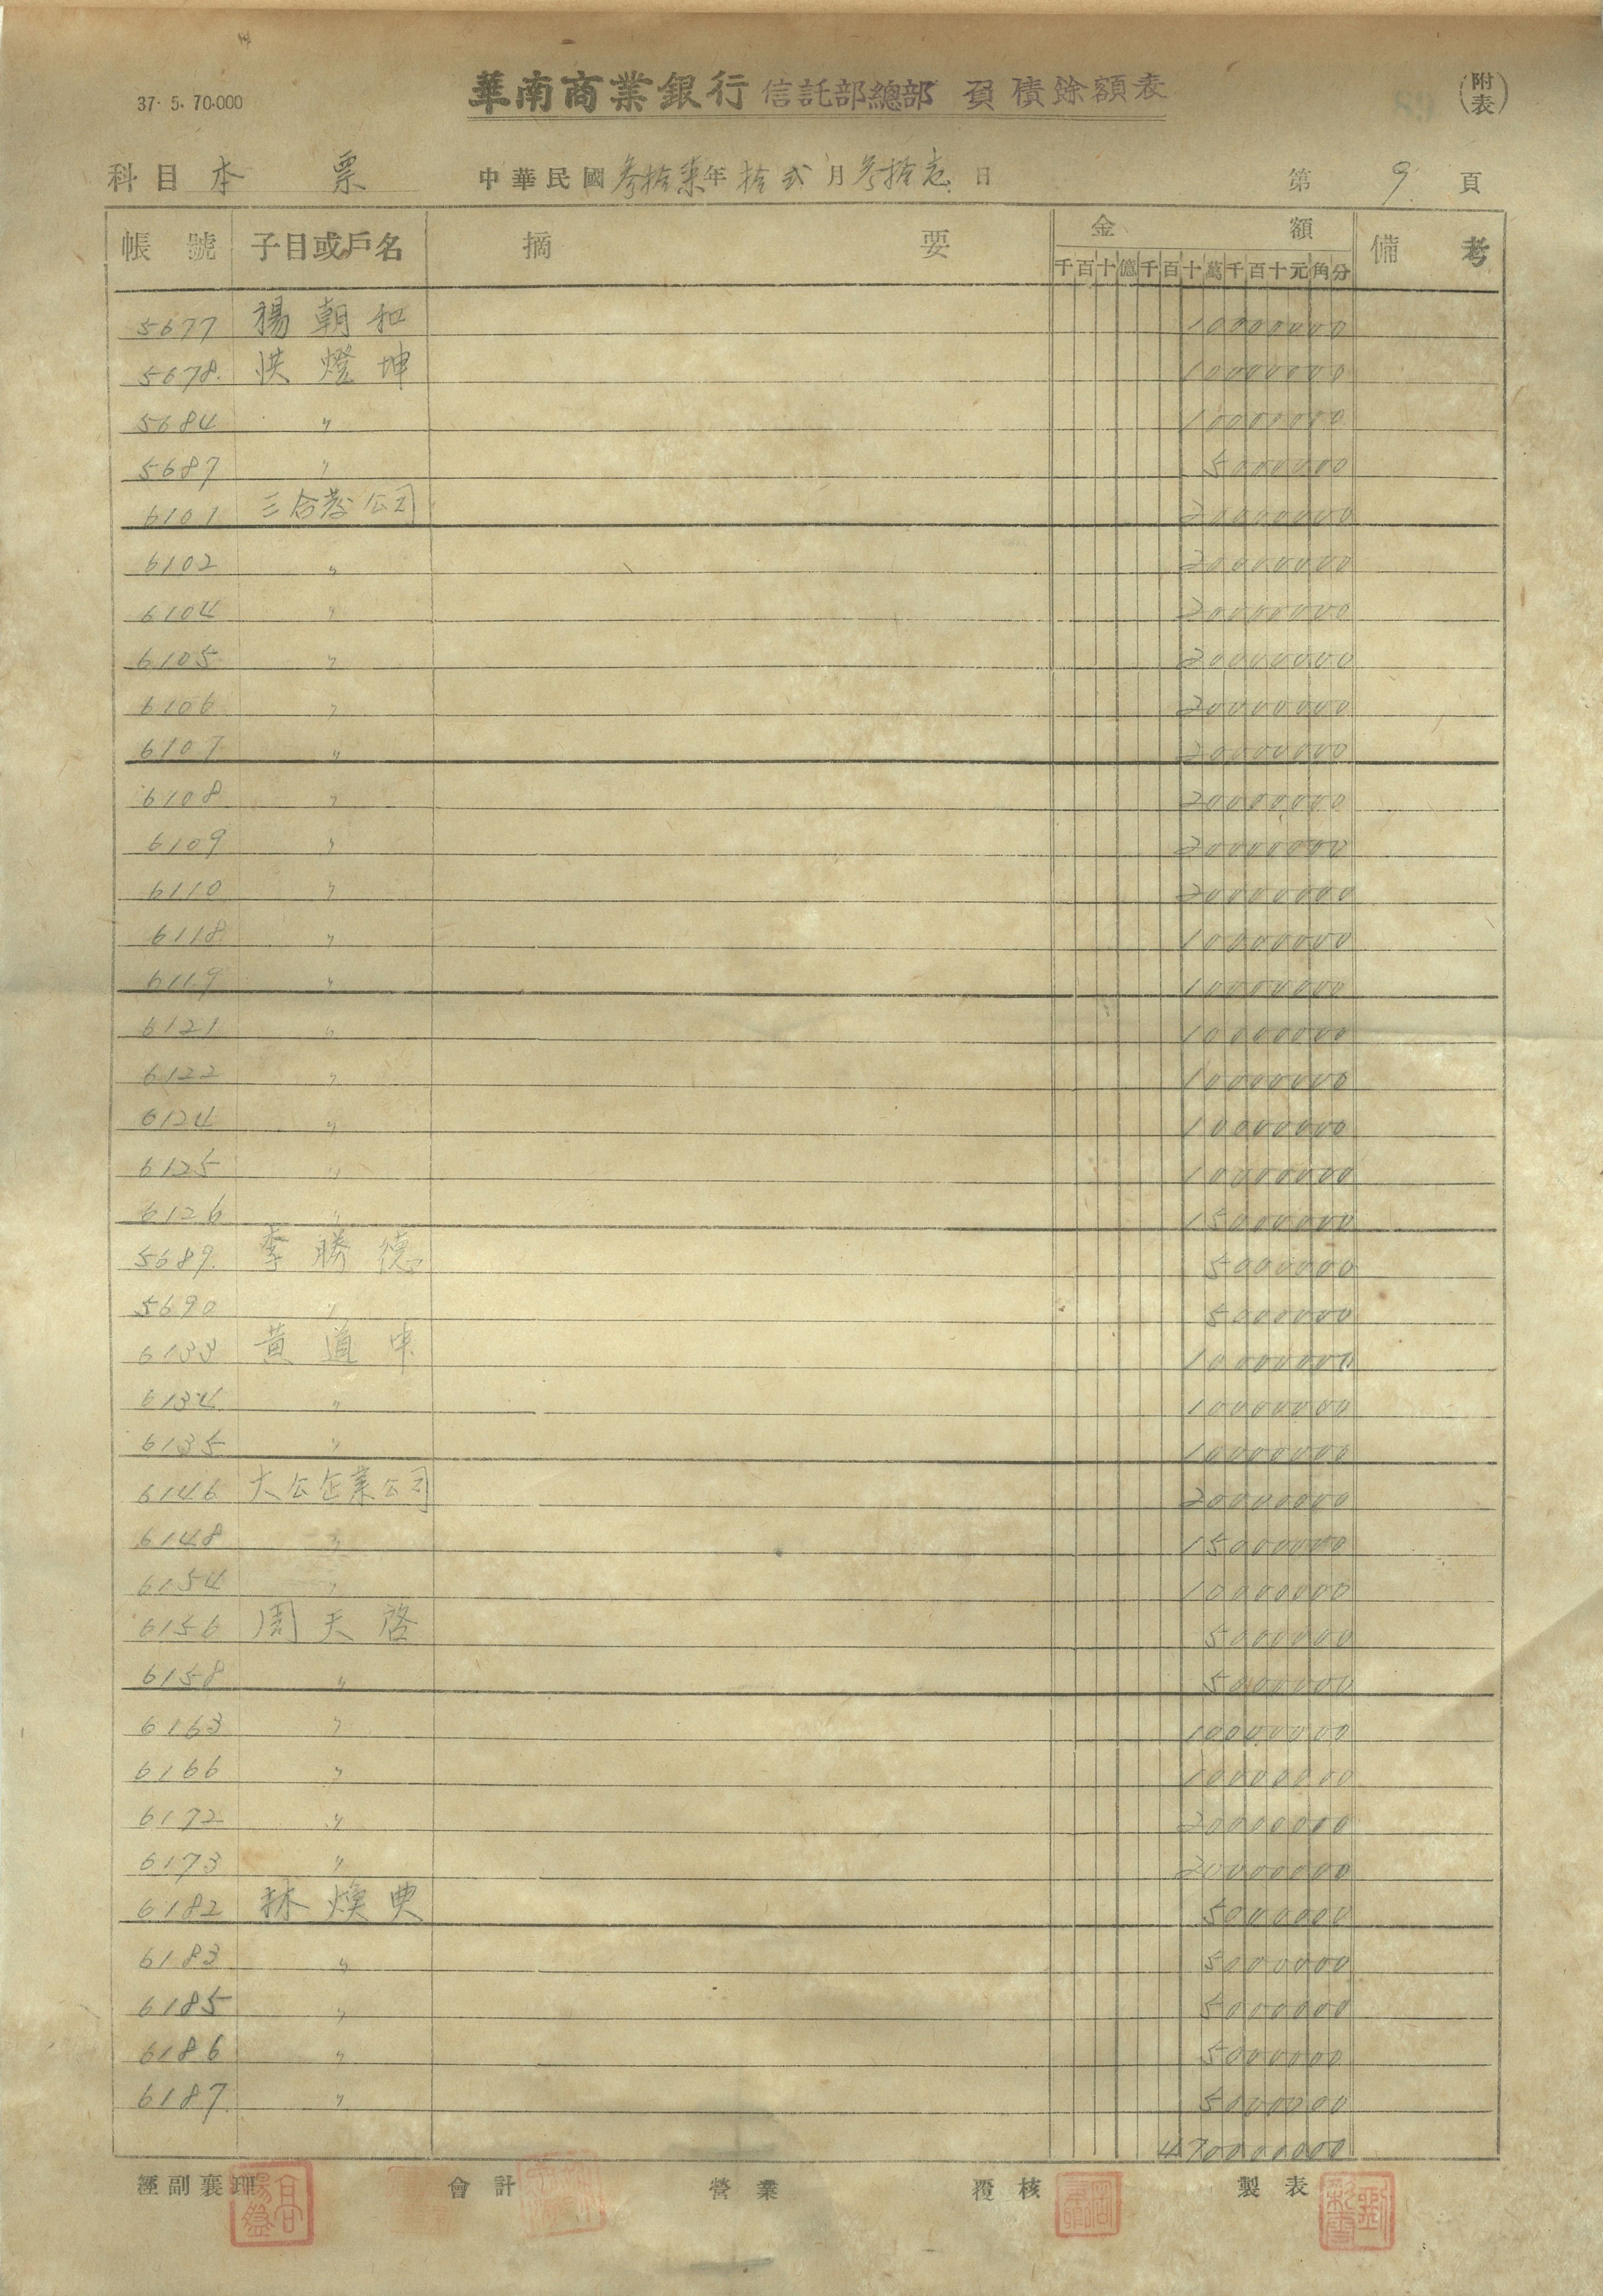 37. 5. 70.000
華南商業銀行 信託部總部 負債餘額表
(附表)
科目 本 票 中華民國 參拾柒年 拾弍月 參拾壱日 第 9. 頁
帳號 子目或戶名 摘要 金額 備考
千百十億千百十萬千百十元角分
5677 楊朝和 10000000
5678. 洪燈坤 10000000
5684 〃 10000000
5687 〃 5000000
6101 三合 公司 20000000
6102 〃 20000000
6104 〃 20000000
6105 〃 20000000
6106 〃 20000000
6107 〃 20000000
6108 〃 20000000
6109 〃 20000000
6110 〃 20000000
6118 〃 10000000
6119 〃 10000000
6121 〃 10000000
6122 〃 10000000
6124 〃 10000000
6125 〃 10000000
6126 〃 15000000
5689. 李勝德 5000000
5690 〃 5000000
6133 黃道 10000000
6134 〃 10000000
6135 〃 10000000
6146 大公企業公司 20000000
6148 〃 15000000
6154 〃 10000000
6156 周天啓 5000000
6158 〃 5000000
6163 〃 10000000
6166 〃 10000000
6172 〃 20000000
6173 〃 20000000
6182 林煥典 5000000
6183 〃 5000000
6185 〃 5000000
6186 〃 5000000
6187. 〃 5000000
470000000
經副襄理 會計 營業 覆核 製表